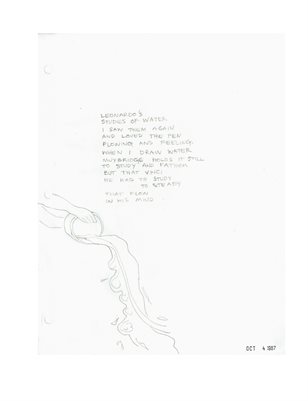 LEONARDO'S
STUDIES OF WATER.
I SAW THEM AGAIN
AND LOVED THE PEN
FLOWING AND FEELING.
WHEN I DRAW WATER
MUYBRIDGE HOLDS IT STILL
TO STUDY AND FATHOM
BUT THAT VINCI
HE HAD TO STUDY
TO STEADY
THAT FLOW
IN HIS MIND
OCT 4 1987